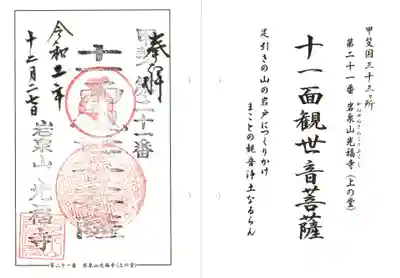 甲斐国三十三ヶ所
第二十一番 岩泉山光福寺(上の堂)
十一面観世音菩薩
足引きの山の岩戸につくりかけ
まことの観音浄土なるらん
奉拝
二十一番
十一面
岩泉山 光福寺
十二月二七日
第二十一番 岩泉山光福寺(上の堂)